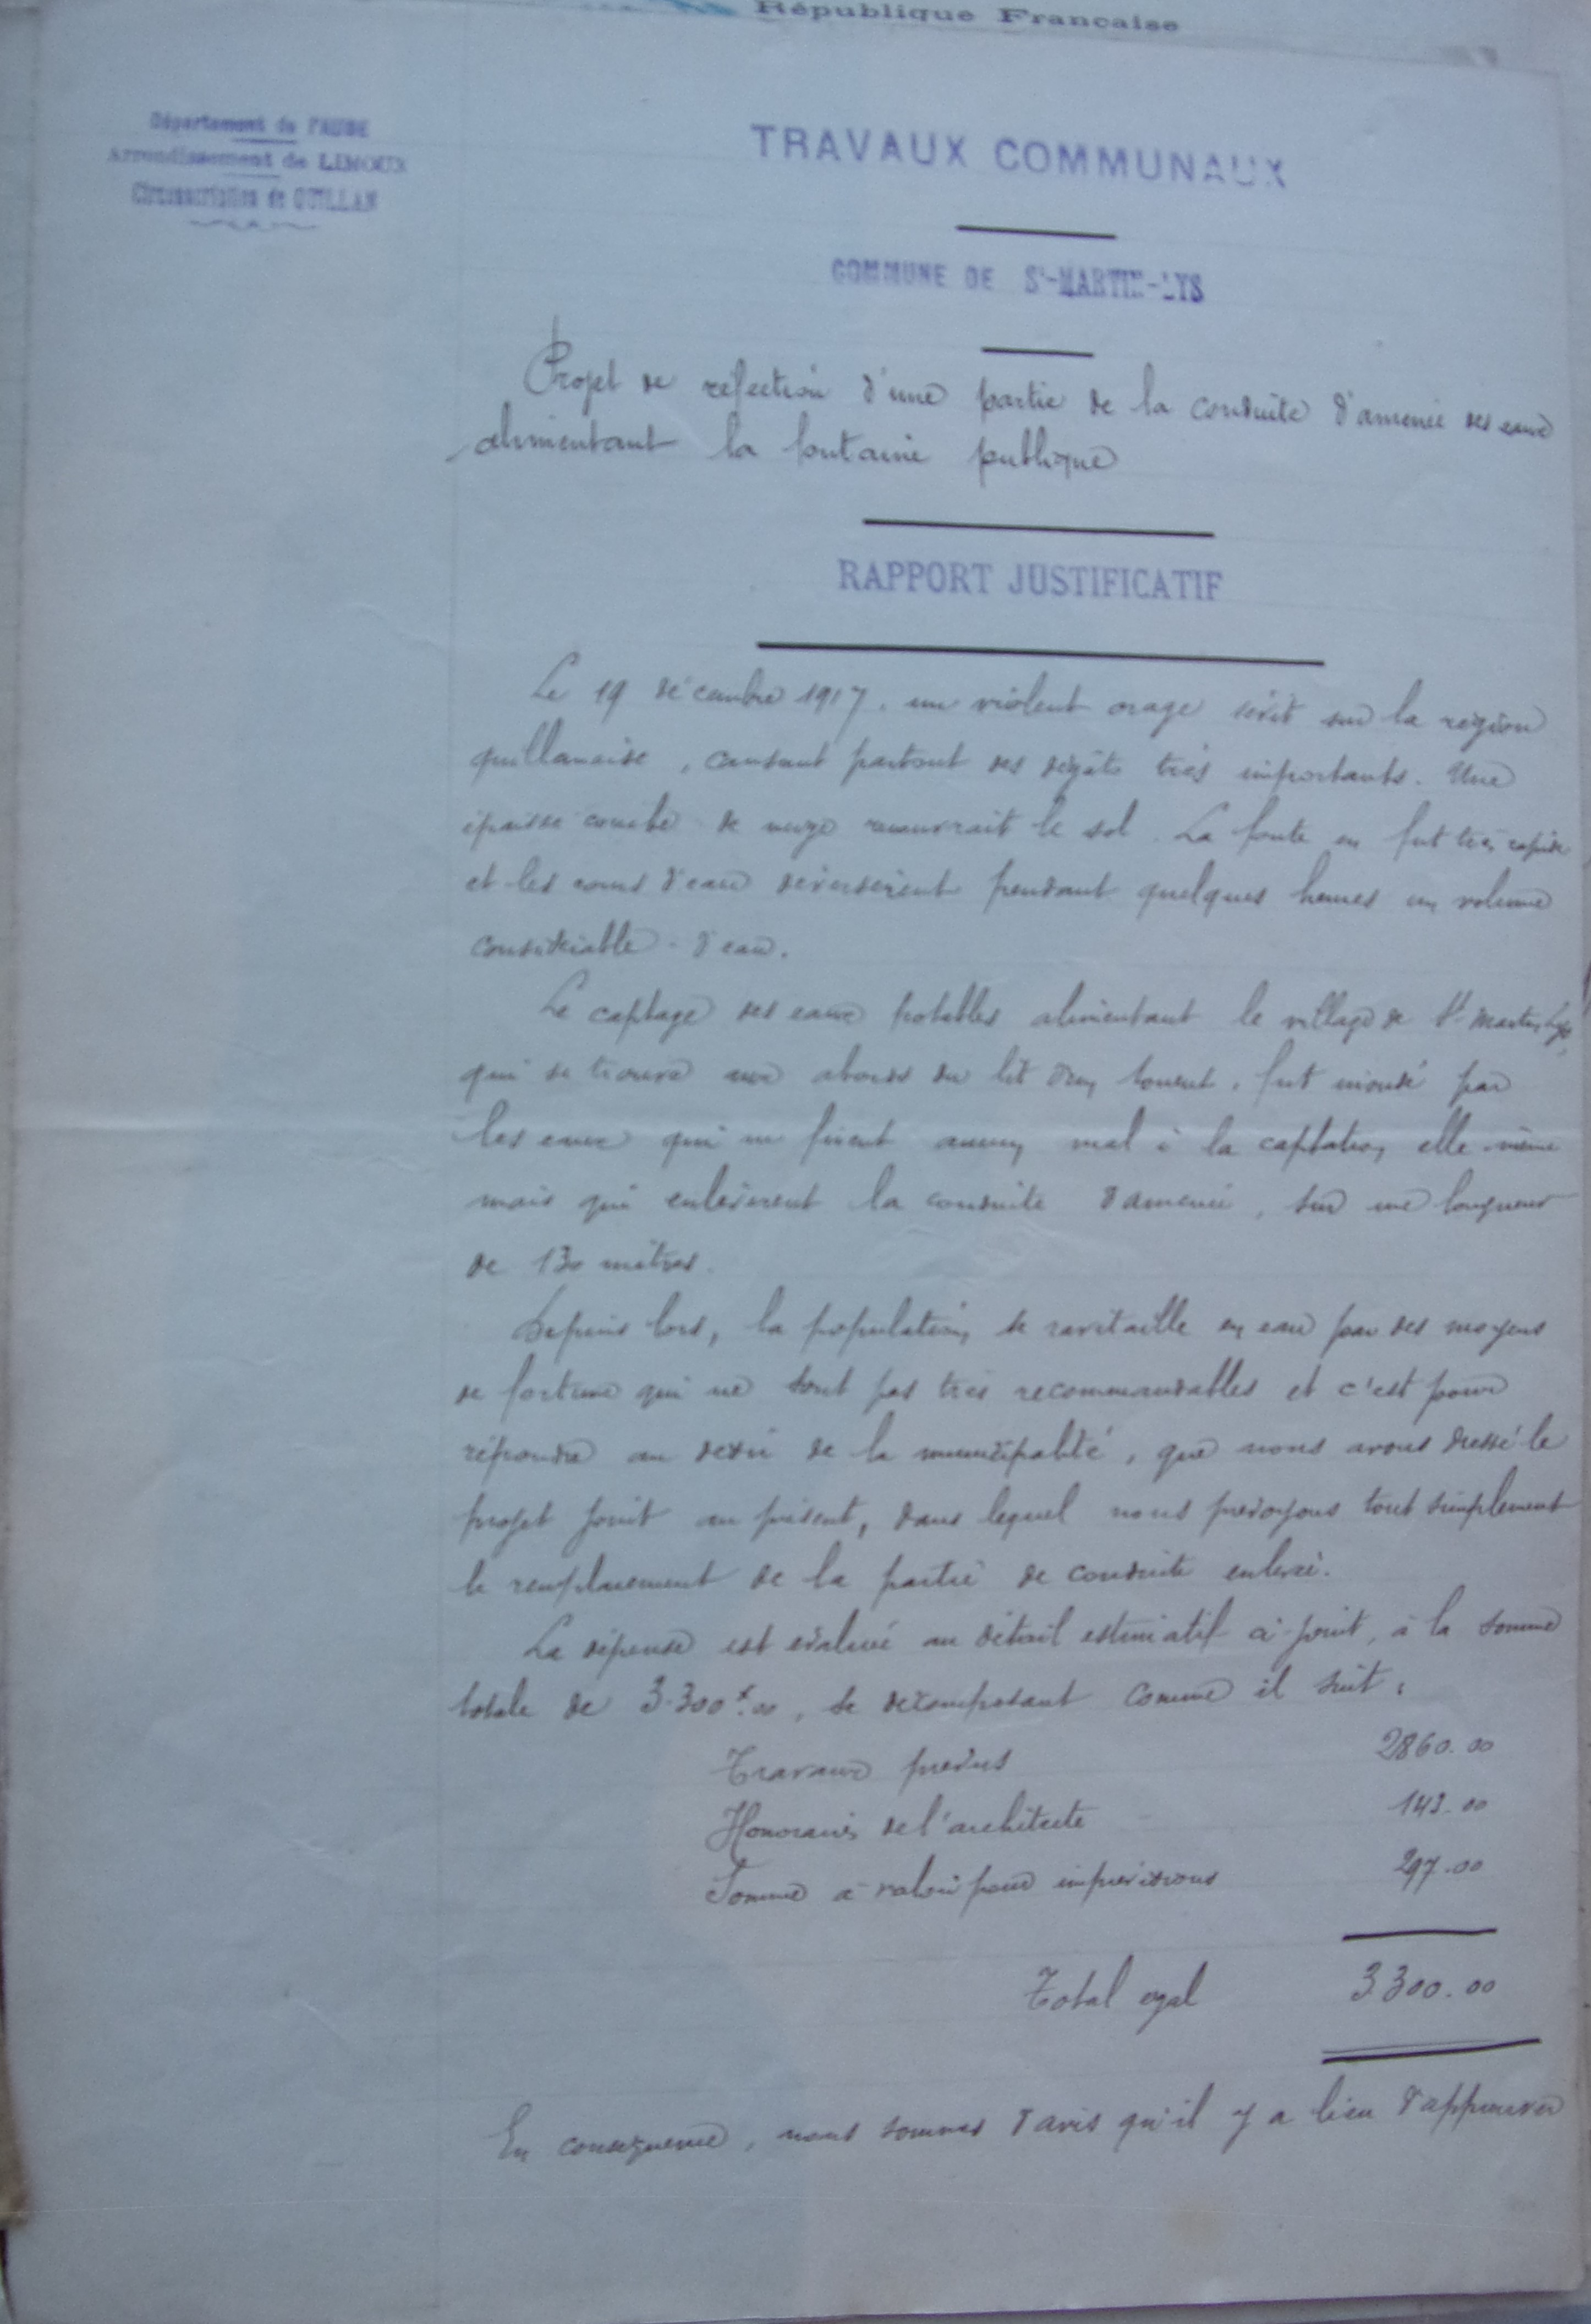 République Francaise
Département de l'AUDE
Arrondissement de LIMOUX
Circonscription de QUILLAN
TRAVAUX COMMUNAUX
COMMUNE DE St-MARTIN-LYS
Projet de réfection d'une partie de la conduite d'amenée des eaux
alimentant la fontaine publique
RAPPORT JUSTIFICATIF
Le 19 décembre 1917, un violent orage sévit sur la région
quillanaise, causant partout des dégâts très importants. Une
épaisse couche de neige recouvrait le sol. La fonte en fut très rapide
et les cours d'eau déversèrent pendant quelques heures un volume
considérable d'eau.
Le captage des eaux potables alimentant le village de St Martin Lys,
qui se trouve aux abords du lit d'un torrent, fut inondé par
les eaux qui ne firent aucun mal à la captation elle-même
mais qui enlevèrent la conduite d'amenée, sur une longueur
de 130 mètres.
Depuis lors, la population se ravitaille en eau par des moyens
de fortune qui ne sont pas très recommandables et c'est pour
répondre au désir de la municipalité, que nous avons dressé le
projet joint au présent, dans lequel nous prévoyons tout simplement
le remplacement de la partie de conduite enlevée.
La dépense est évaluée au détail estimatif ci-joint, à la somme
totale de 3.300f.00, se décomposant comme il suit :
Travaux prévus 2860.00
Honoraires de l'architecte 143.00
Somme à valoir pour imprévisions 297.00
Total égal 3.300.00
En conséquence, nous sommes d'avis qu'il y a lieu d'approuver